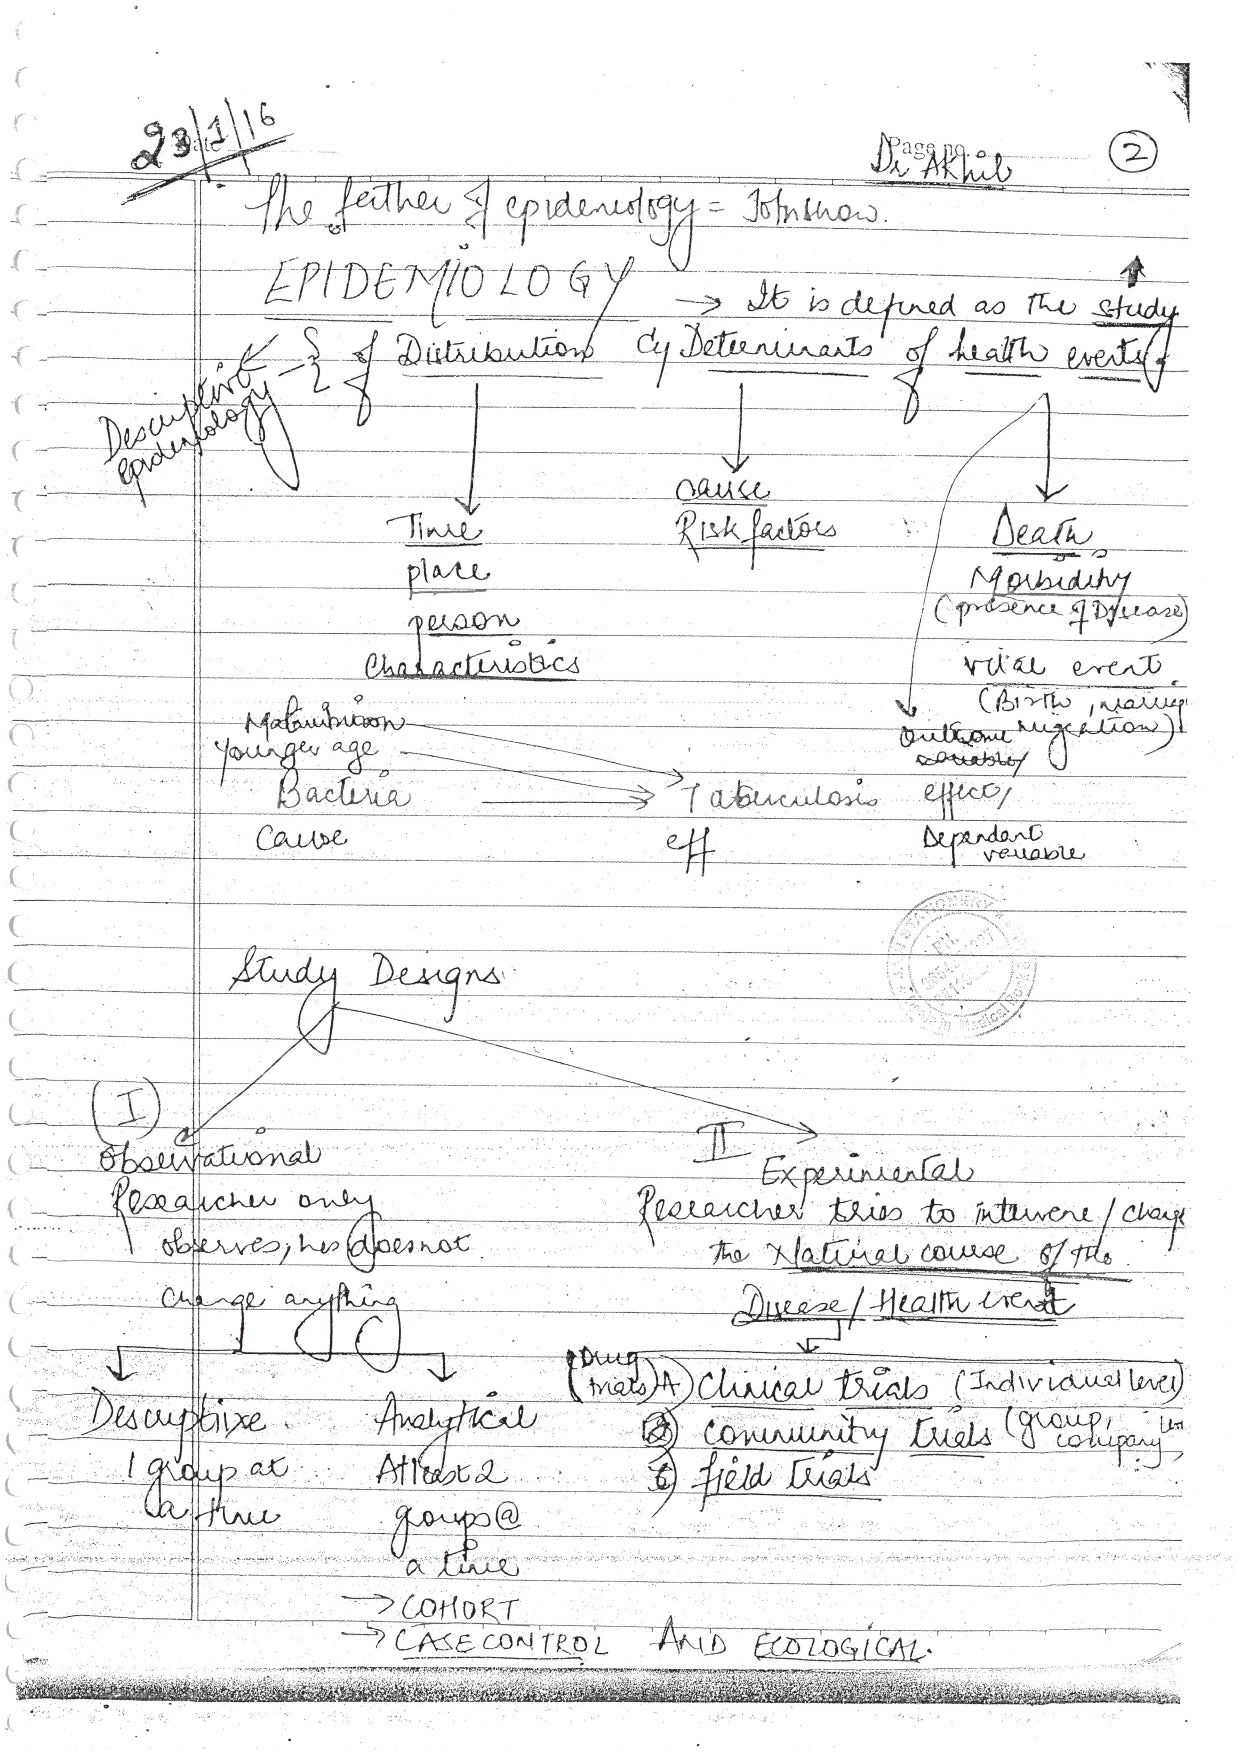 23/1/16
Page no.
Dr Akhil
2
The father of epideneology = John snow.
EPIDEMIOLOGY → It is defined as the study
of Distribution Cy Determinants of health events.
Descriptive
epidemiology
Time
place
person
characteristics
cause
Risk factors
Death
Morbidity
(presence of Disease)
vital event
(Birth, marriage
migration)
Malnutrition
younger age
Bacteria → Tuberculosis
cause
eff
outcome
variable/
effect/
Dependant
variable
Study Designs
I
Observational
Researcher only
observes, hes doesnot
change anything
II
Experimental
Researcher tries to intervene / change
the Natural course of the
Disease / Health event
Descriptive
1 group at
a time
Analytical
Atleast 2
groups @
a time
→ COHORT
→ CASE CONTROL AND ECOLOGICAL.
(Drug
trials) A) Clinical trials (Individual level)
B) community trials (group,
company
C) field trials